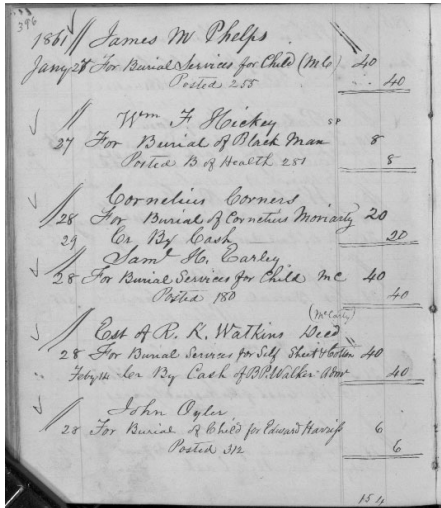 396
1861 // James M Phelps
Jany 27 For Burial Services for Child (MC) 40
Posted 255 40
// Wm F. Hickey SP
27 For Burial of Black Man 8
Posted B of Health 281 8
// Cornelius Corners
28 For Burial of Cornelius Moriarty 20
29 Cr By Cash 20
// Saml H. Earley
28 For Burial Services for Child MC 40
Posted 180 40
(McCarty)
// Est of R. K. Watkins Decd
28 For Burial Services for Self 40
Feby 14 Cr By Cash of B P Walker Admr 40
// John Oyler
28 For Burial of Child for Edward Harriss 6
Posted 312 6
154